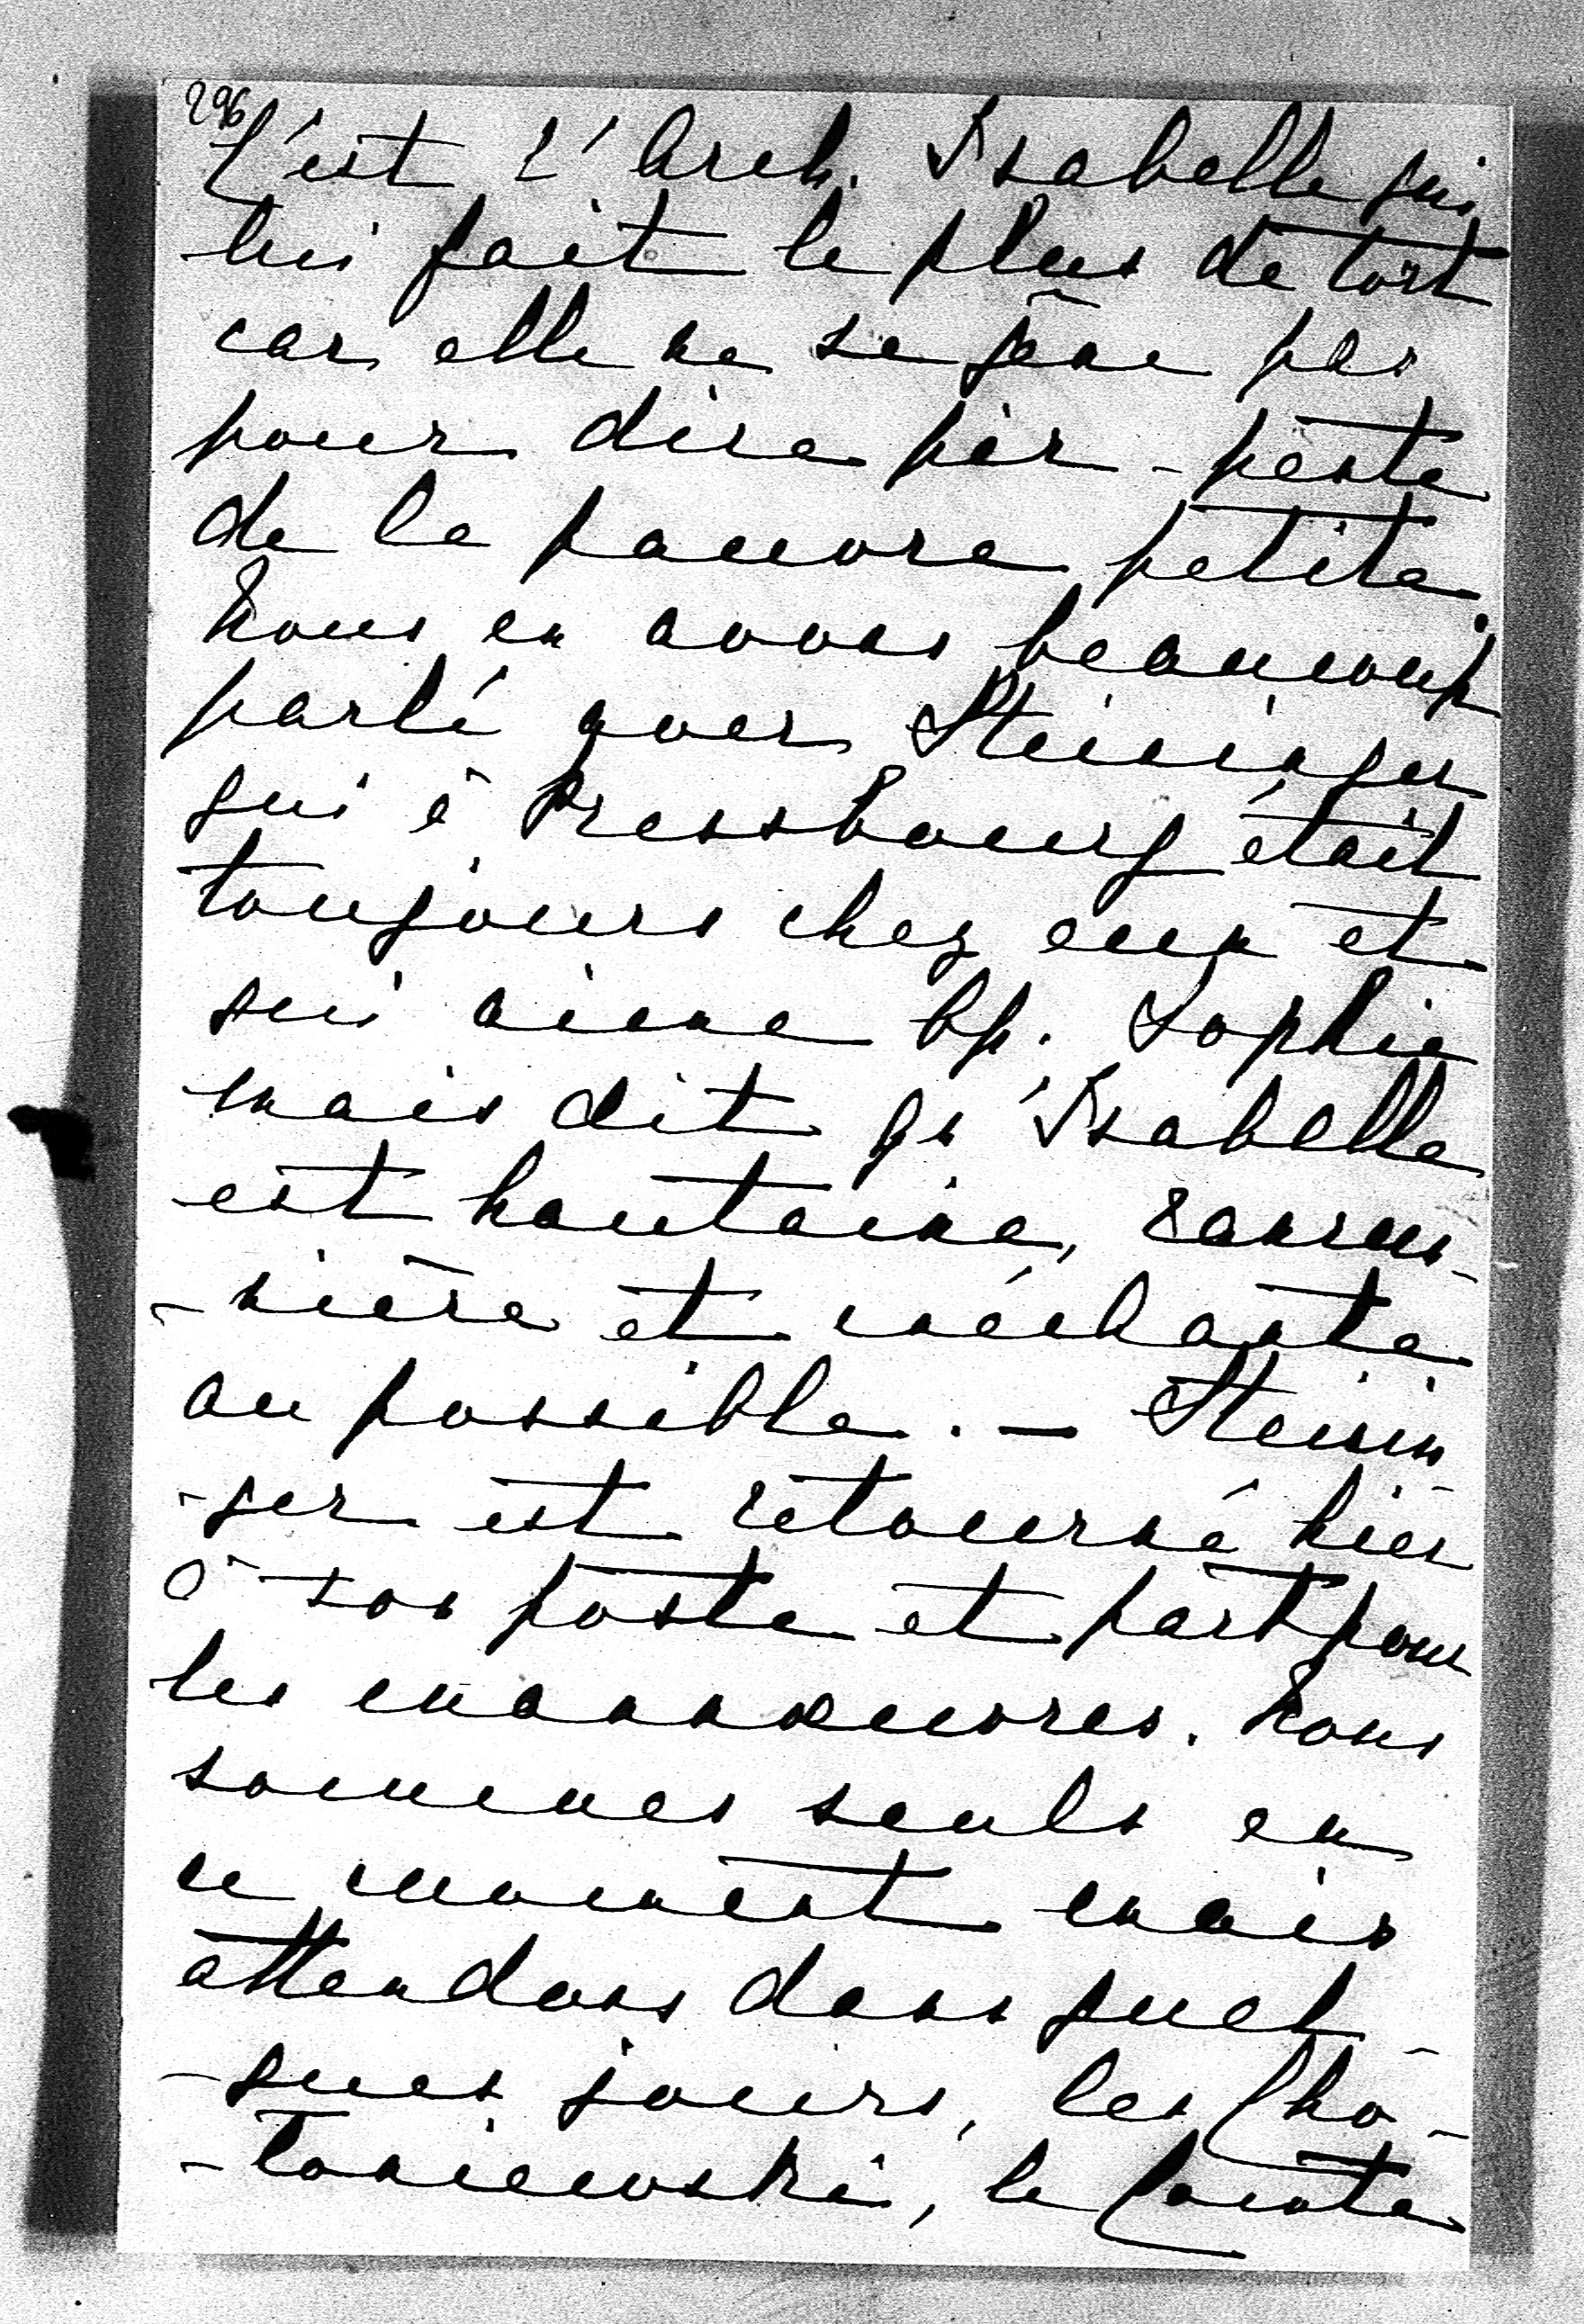 296
C'est l'Arch. Isabelle qui
lui fait le plus de tort
car elle ne se gêne pas
pour dire pis-peste
de la pauvre petite.
Nous en avons beaucoup
parlé avec Steininger
qui à Pressbourg était
toujours chez eux et
qui aime bp. Sophie
mais dit qu'Isabelle
est hautaine, rancu-
-nière et méchante
au possible. – Steinin-
-ger est retourné hier
à son poste et part pour
les manœuvres. Nous
sommes seuls en
ce moment mais
attendons dans quel-
-ques jours, les Cho-
-toniewski, le Comte